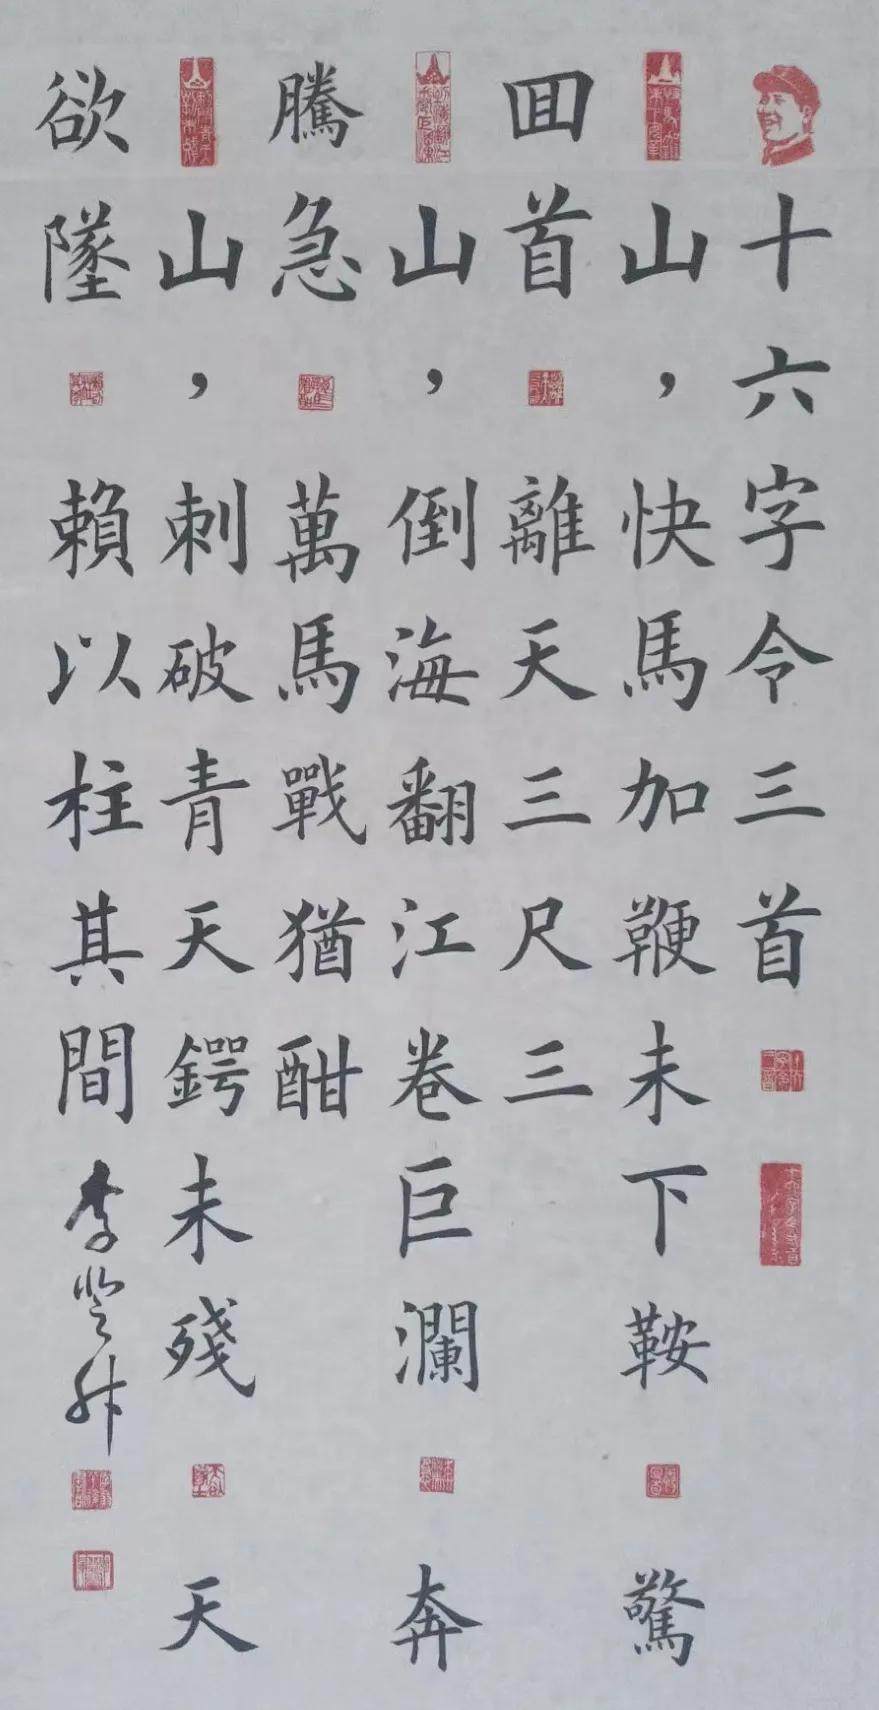 十六字令三首
山，快馬加鞭未下鞍 驚
回首 離天三尺三
山，倒海翻江卷巨瀾 奔
騰急 萬馬戰猶酣
山，刺破青天鍔未殘 天
欲墜 賴以柱其間 李